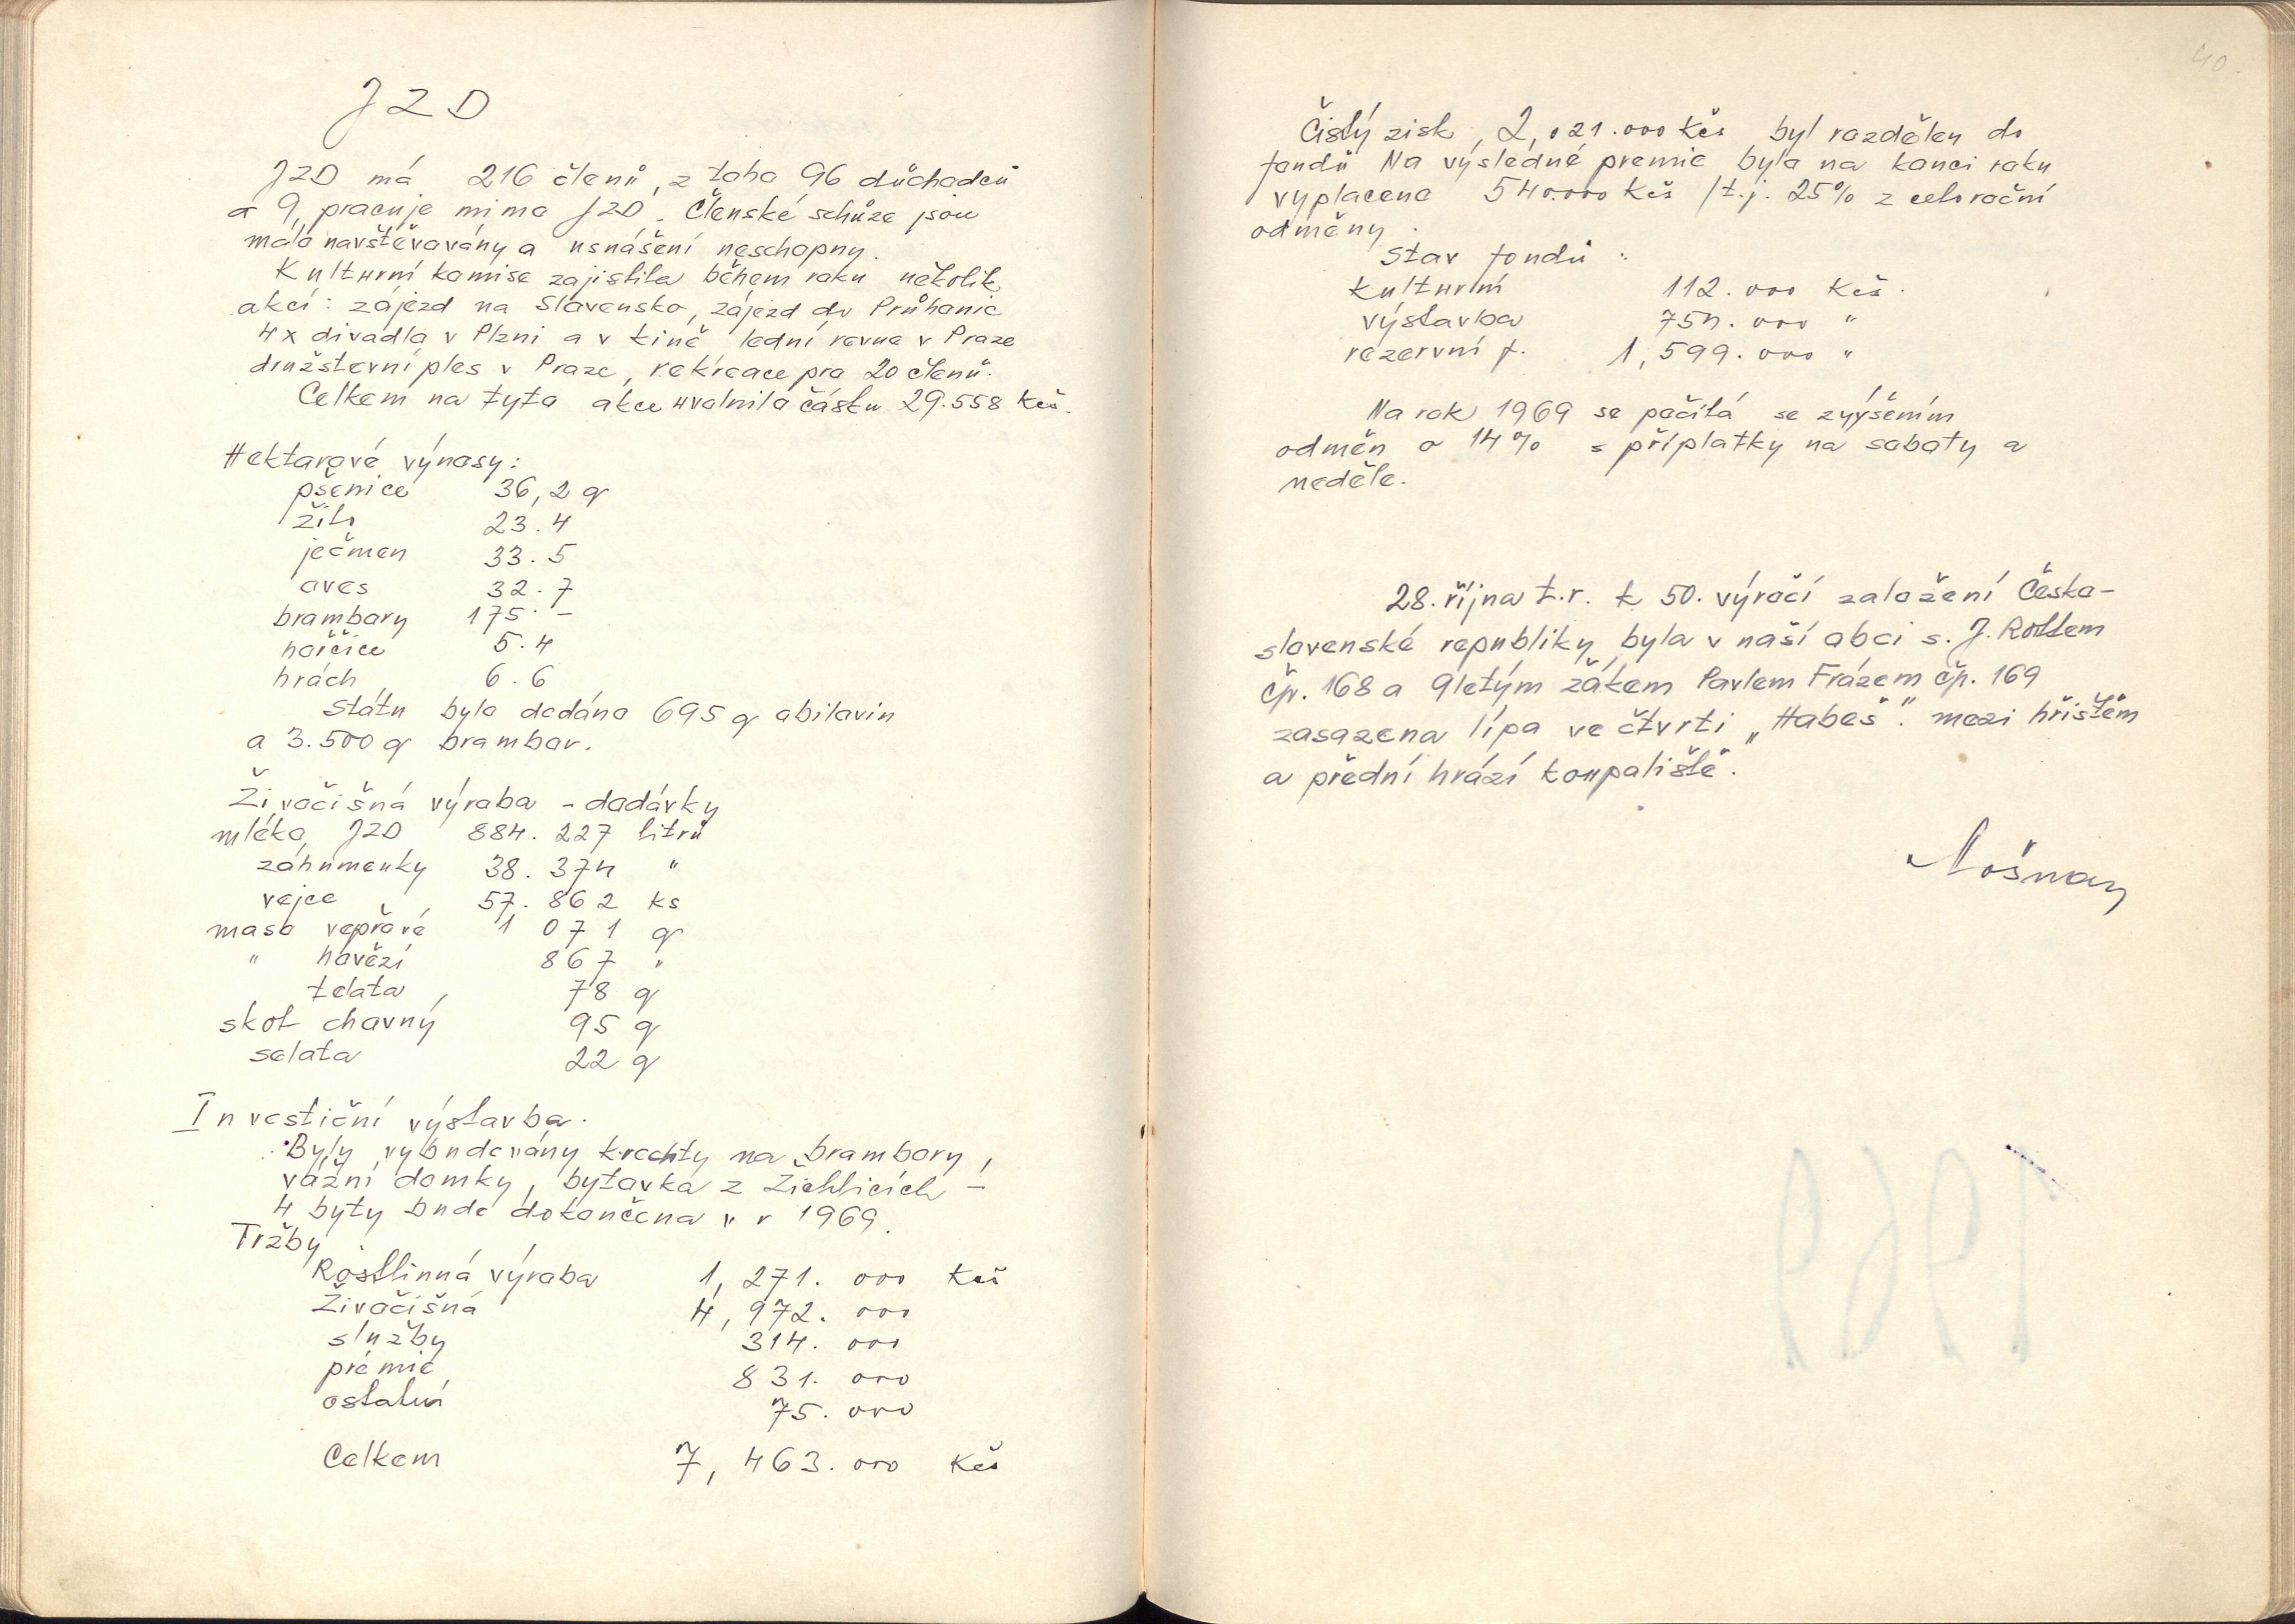 JZD
JZD má 216 členů, z toho 96 důchodců
a 9 pracuje mimo JZD. Členské schůze jsou
málo navštěvovány a usnášení neschopny.
Kulturní komise zajistila během roku několik
akcí: zájezd na Slovensko, zájezd do Průhonic
4x divadlo v Plzni a v kině lední revue v Praze
družstevní ples v Praze, rekreace pro 20 členů.
Celkem na tyto akce uvolnila částku 29.558 Kčs.
Hektarové výnosy:
pšenice 36,2 q
žito 23.4
ječmen 33.5
oves 32.7
brambory 175.-
hořčice 5.4
hrách 6.6
Státu bylo dodáno 695 q obilovin
a 3.500 q brambor.
Živočišná výroba - dodávky
mléko JZD 884.227 litrů
záhumenky 38.374 "
vejce 57.862 ks
maso vepřové 1 071 q
" hovězí 867 "
telata 78 q
skot chovný 95 q
selata 22 q
Investiční výstavba.
Byly vybudovány krechty na brambory,
vážní domky, bytovka z Žichlicích -
4 byty bude dokončena v r 1969.
Tržby
Rostlinná výroba 1,271.000 Kčs
Živočišná 4,972.000
služby 314.000
prémie 831.000
ostatní 75.000
Celkem 7,463.000 Kčs
40
Čistý zisk, 2,021.000 Kčs byl rozdělen do
fondů Na výsledné premie bylo na konci roku
vyplaceno 540.000 Kčs /t.j. 25% z celoroční
odměny.
Stav fondů:
kulturní 112.000 Kčs.
výstavba 754.000 "
rezervní f. 1,599.000 "
Na rok 1969 se počítá se zvýšením
odměn o 14% s příplatky na soboty a
neděle.
28. října t.r. k 50. výročí založení Česko-
slovenské republiky byla v naší obci s. J. Rottem
čp. 168 a 9letým žákem Pavlem Frázem čp. 169
zasazena lípa ve čtvrti „Habeš". mezi hřištěm
a přední hrází koupaliště.